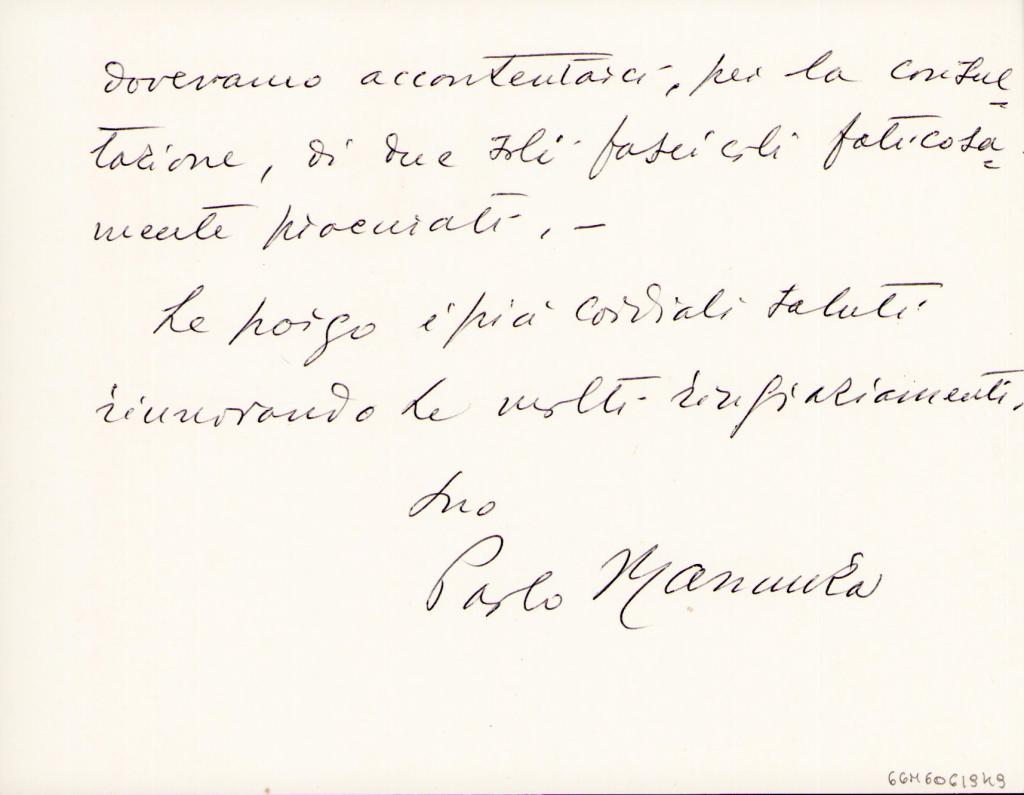 dovevamo accontentarci, per la consul=
tazione, di due soli fascicoli faticosa=
mente procurati. –
Le porgo i più cordiali saluti
rinnovando Le molti ringraziamenti.
Suo
Paolo
66M6061949